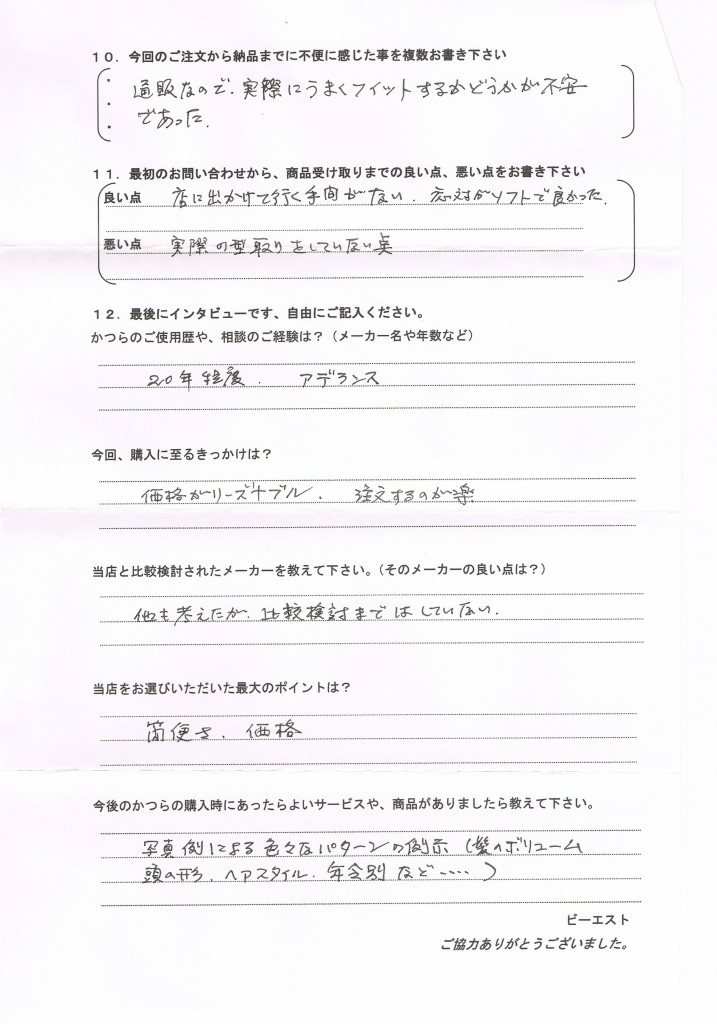 １０．今回のご注文から納品までに不便に感じた事を複数お書き下さい
・通販なので、実際にうまくフィットするかどうかが不安
・
・であった。
１１．最初のお問い合わせから、商品受け取りまでの良い点、悪い点をお書き下さい
良い点 店に出かけて行く手間がない。応対がソフトで良かった。
悪い点 実際の型取りをしていない点
１２．最後にインタビューです、自由にご記入ください。
かつらのご使用歴や、相談のご経験は？（メーカー名や年数など）
２０年程度． アデランス
今回、購入に至るきっかけは？
価格がリーズナブル． 注文するのが楽
当店と比較検討されたメーカーを教えて下さい。（そのメーカーの良い点は？）
他も考えたが、比較検討まではしていない．
当店をお選びいただいた最大のポイントは？
簡便さ．価格
今後のかつらの購入時にあったらよいサービスや、商品がありましたら教えて下さい。
写真例による色々なパターンの例示（髪のボリューム
頭の形．ヘアスタイル．年令別など‥‥）
ビーエスト
ご協力ありがとうございました。